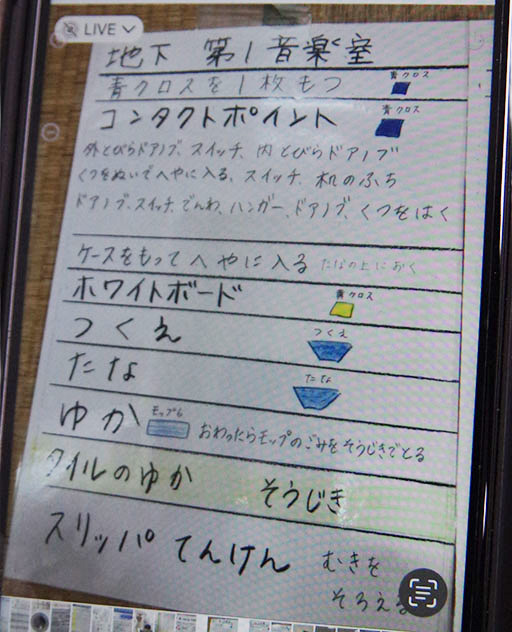 LIVE
地下 第1音楽室
青クロスを1枚もつ
青クロス
コンタクトポイント
青クロス
外とびらドアノブ、スイッチ、内とびらドアノブ
くつをぬいでへやに入る、スイッチ、机のふち
ドアノブ、スイッチ、でんわ、ハンガー、ドアノブ、くつをはく
ケースをもってへやに入る たなの上におく
ホワイトボード
青クロス
つくえ
つくえ
たな
たな
ゆか
モップ6
おわったらモップのごみをそうじきでとる
タイルのゆか そうじき
スリッパ てんけん むきを
そろえる